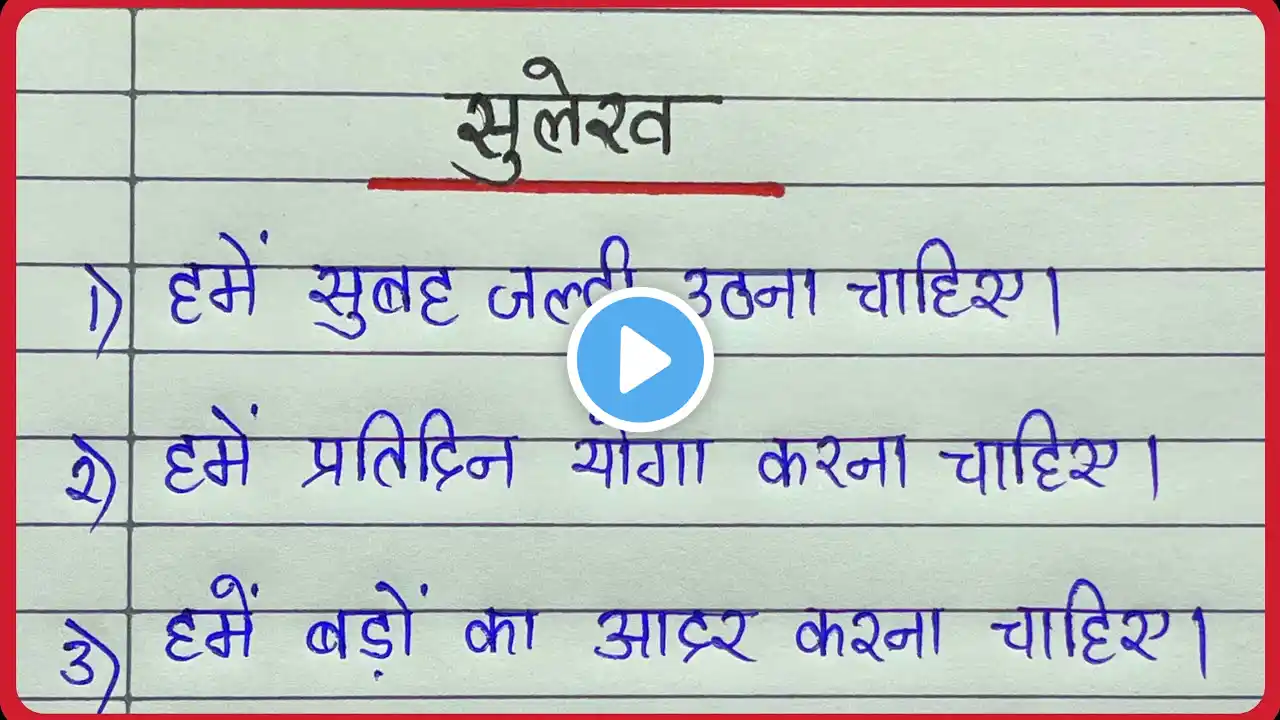 सुलेख
1) हमें सुबह जल्दी उठना चाहिए।
२) हमें प्रतिदिन योगा करना चाहिए।
3) हमें बड़ों का आदर करना चाहिए।